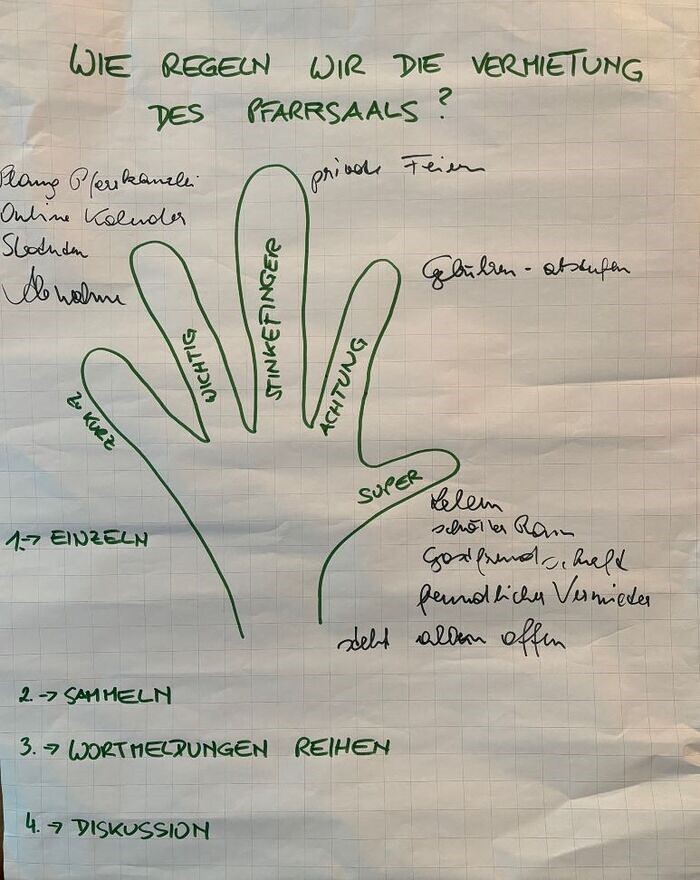 WIE REGELN WIR DIE VERMIETUNG
DES PFARRSAALS?
Planung Pfarrkanzlei
Online Kalender
Abnahme
private Feiern
Gebühren - abstufen
ZU KURZ
WICHTIG
STINKEFINGER
ACHTUNG
SUPER
schöner Raum
Gastfreundschaft
freundlicher Vermieter
steht allen offen
1. → EINZELN
2. → SAMMELN
3. → WORTMELDUNGEN REIHEN
4. → DISKUSSION